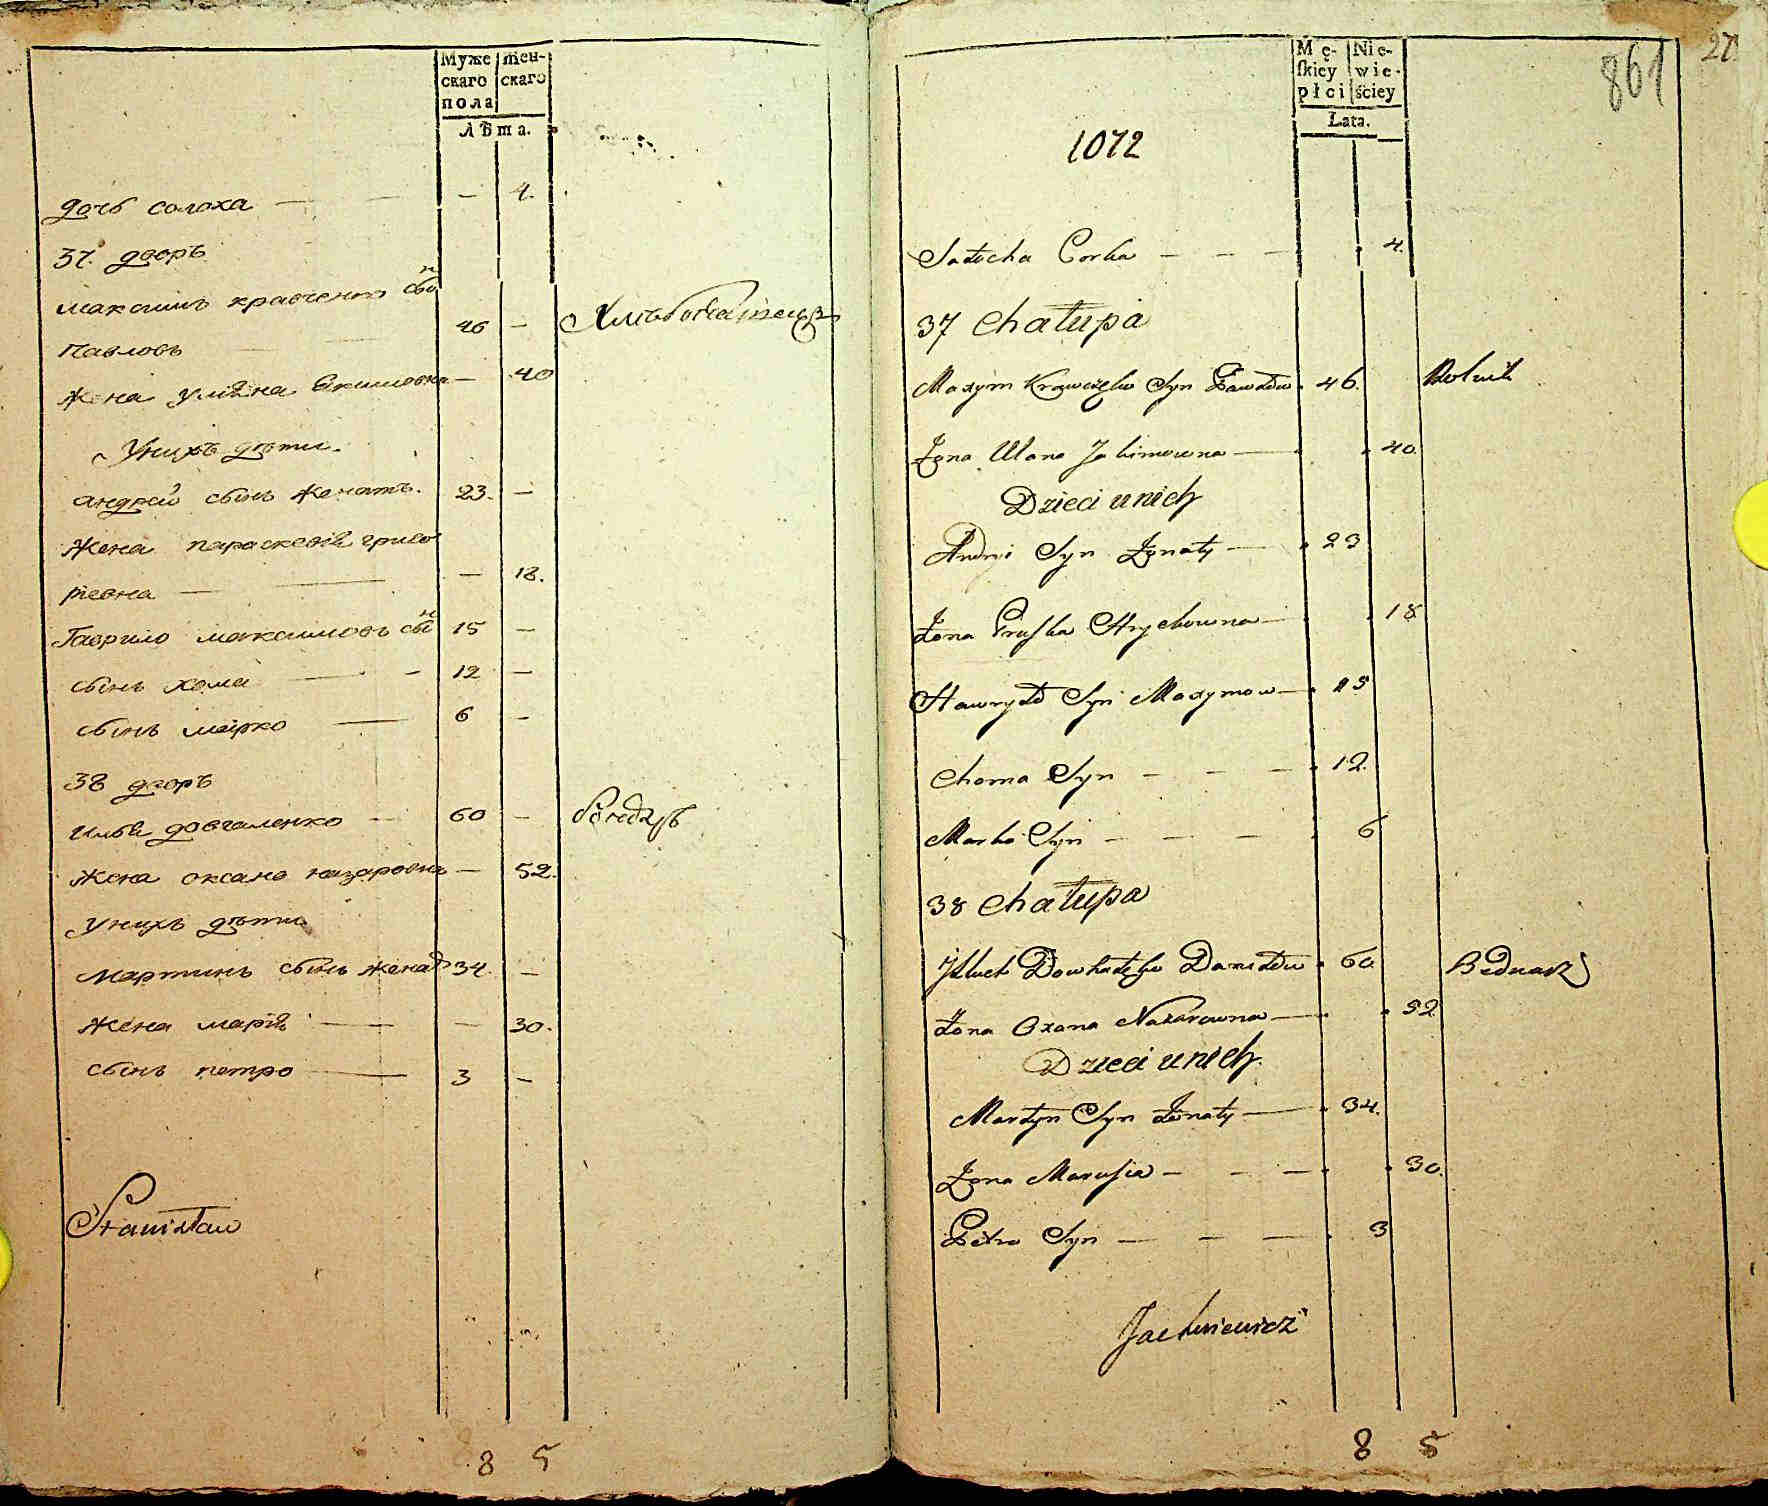 Муже
скаго
пола
жен-
скаго
Лѣта.
дочь солоха — — — 4.
37. дворъ
максимъ кравченко сынъ
Павловъ — — 46 — Хлѣбопашецъ
жена уліяна Якимовна — 40
У нихъ дѣти.
андрей сынъ женатъ. 23. —
жена параскевія григо
ріевна — — — 18.
Гаврило максимовъ сынъ 15 —
сынъ хома — — 12 —
сынъ марко — 6 —
38 дворъ
илья довгаленко — 60 — бондарь
жена оксана назаровна — 52.
у нихъ дѣти
мартинъ сынъ женат 34. —
жена марія — — — 30.
сынъ петро — — 3 —
Stanisław
8 5
Mę-
skiey
płci
Nie-
wie-
ściey
Lata.
861
27
1072
Sałocha Corka — — — 4.
37 Chałupa
Maxym Krawczęko Syn Pawłów 46. Rolnik
Żona Ulana Jakimowna — 40.
Dzieci u nich
Andrii Syn Żonaty — 23
Żona Pruska Hrychowna — 18
Hawryło Syn Maxymow — 15
Choma Syn — — — 12.
Marko Syn — — — 6
38 Chałupa
Dowhalęko Daniłów 60 Bednarz
Żona Oxana Nazarowna — 52
Dzieci u nich
Martyn Syn Żonaty — 34.
Żona Marusia — — — 30.
Petro Syn — — — 3
Jachniewicz
8 5